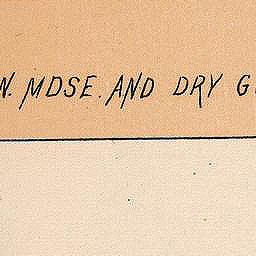 N. MDSE. AND DRY G